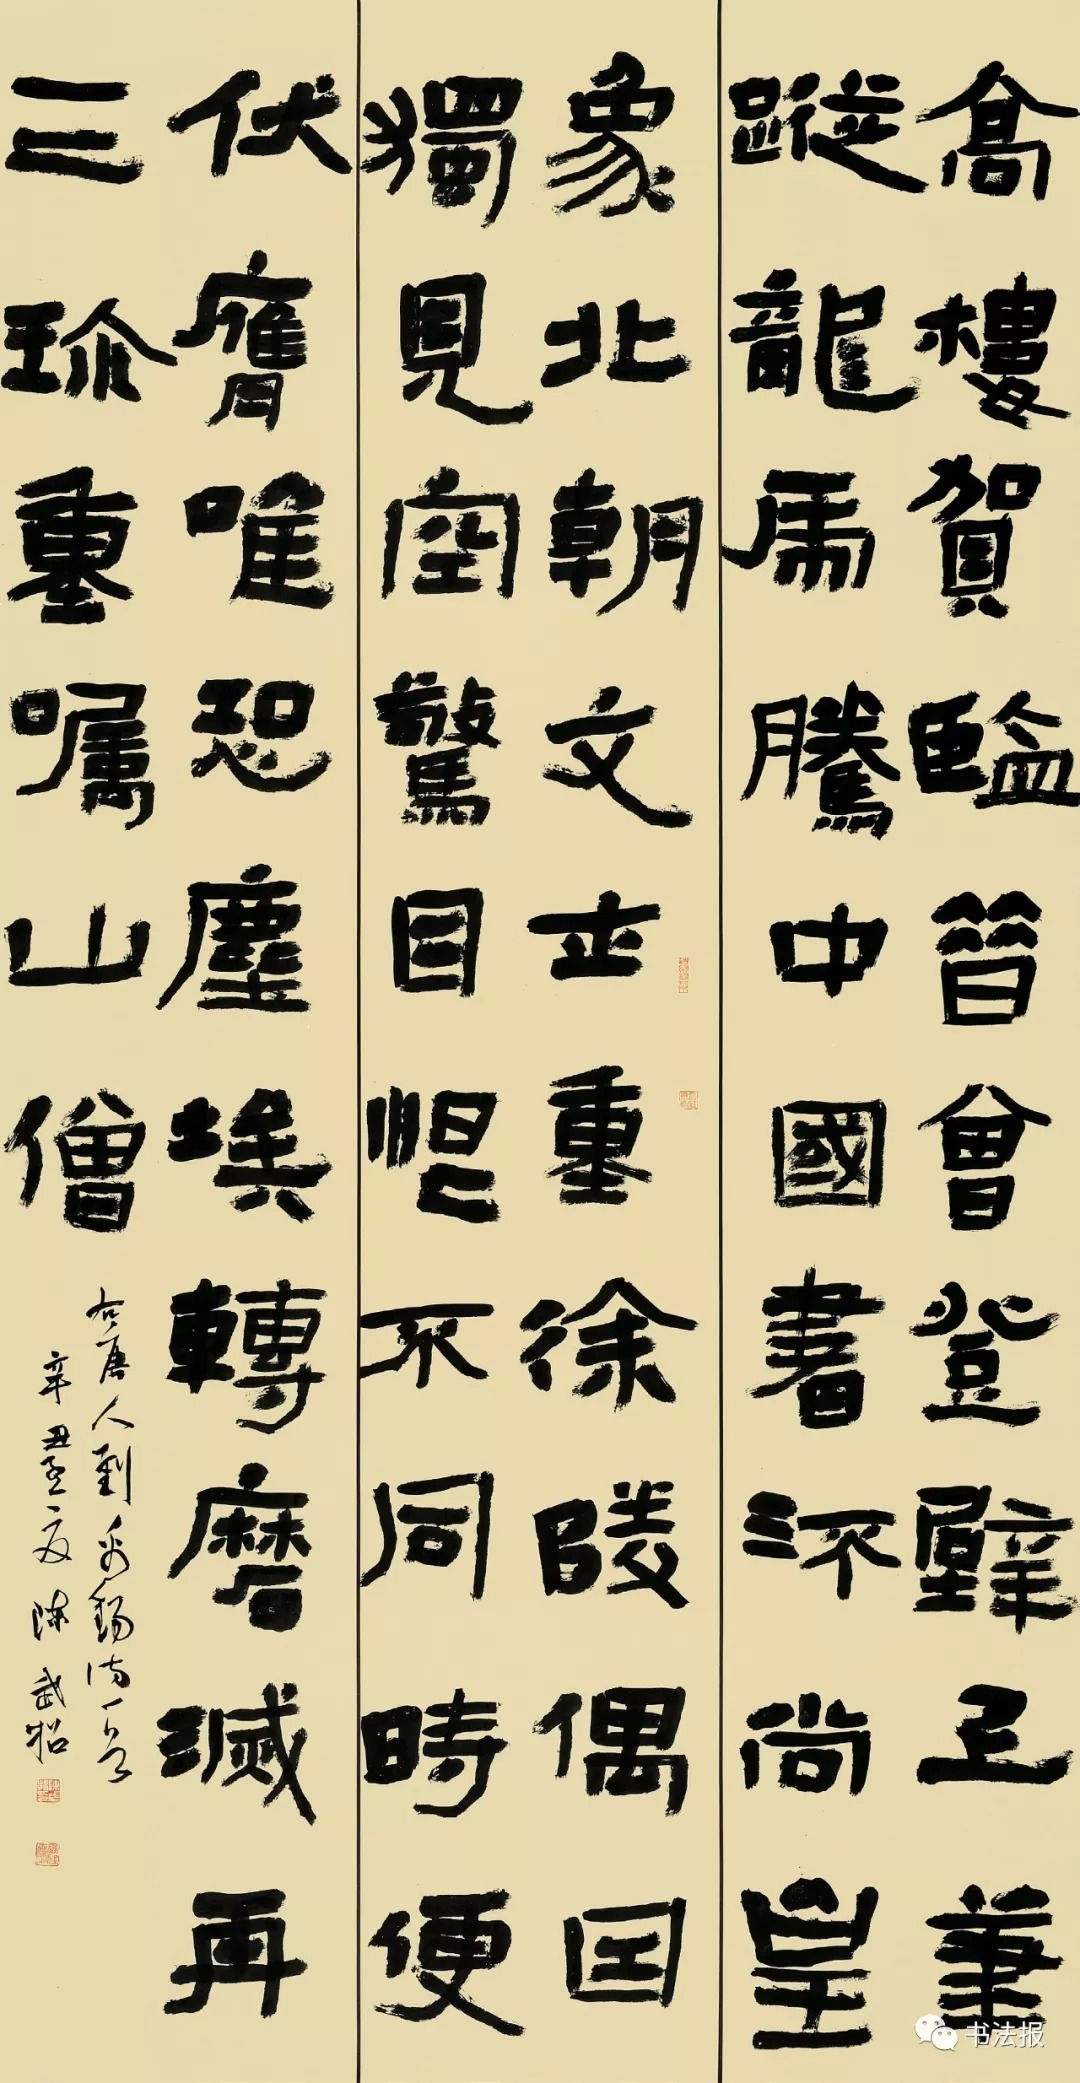 高樓賀監昔曾登壁上筆
蹤龍虎騰中國書流尚皇
象北朝文士重徐陵偶因
獨見空驚目恨不同時便
伏膺唯恐塵埃轉磨滅再
三珍重嘱山僧
右唐人劉禹錫詩一首
辛丑孟夏陳武招
书法报